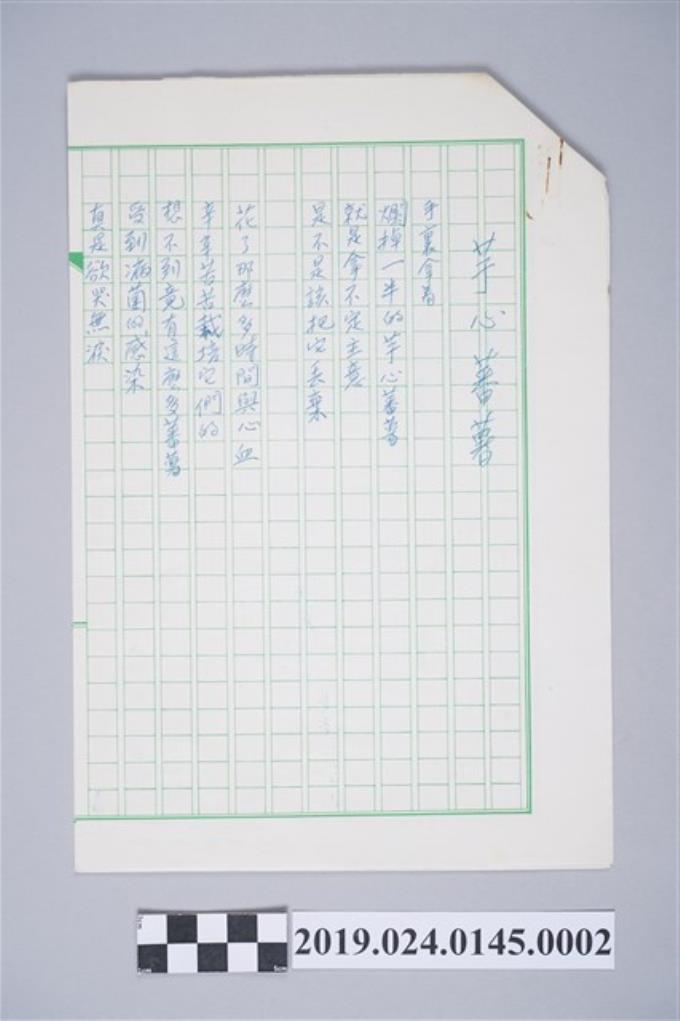 芋心蕃薯
手裏拿着
爛掉一半的芋心蕃薯
就是拿不定主意
是不是該把它丟棄
花了那麼多時間與心血
辛辛苦苦栽培它們的
想不到竟有這麼多蕃薯
受到病菌的感染
真是欲哭無淚
2019.024.0145.0002